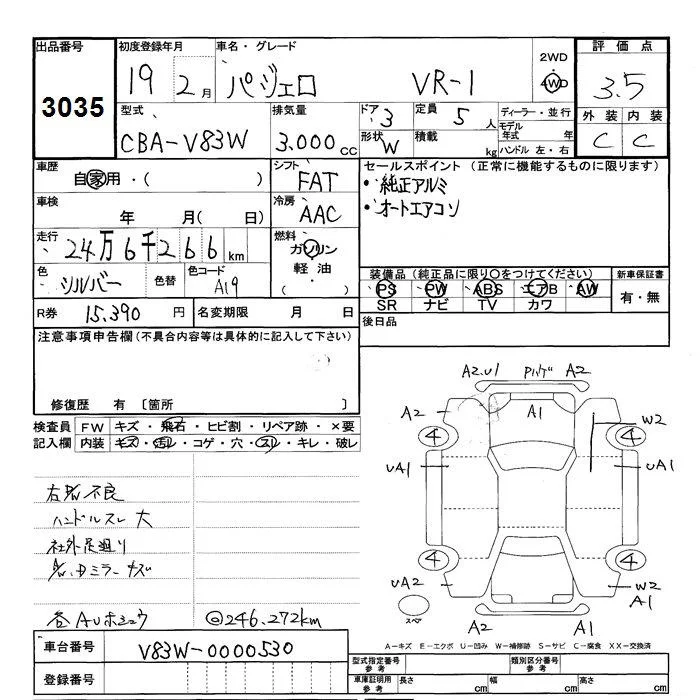 出品番号
3035
初度登録年月
19 2月
車名・グレード
パジェロ VR-1
2WD
4WD
評価点
3.5
型式
CBA-V83W
排気量
3.000cc
ドア
3
定員
5人
形状
W
積載
kg
ディーラー・並行
モデル年式 年
ハンドル 左・右
外装 内装
C C
車歴
自家用・( )
シフト
FAT
セールスポイント (正常に機能するものに限ります)
・純正アルミ
・オートエアコン
車検
年 月( 日)
冷房
AAC
走行
24万6千266km
燃料
ガソリン
軽油・
( )
色
シルバー
色替
色コード
A19
装備品 (純正品に限り○をつけてください)
PS PW ABS エアB AW
SR ナビ TV カワ
新車保証書
有・無
R券
15.390円
名変期限 月 日
後日品
注意事項申告欄(不具合内容等は具体的に記入して下さい)
修復歴 有 〔箇所 〕
検査員記入欄
FW キズ・飛石・ヒビ割・リペア跡・×要
内装 キズ・汚レ・コゲ・穴・スレ・キレ・破レ
不良
ハンドルスレ 大
社外足廻り
ミラー キズ
各AUホシュウ
@246.272km
A2.U1 A2
A2 A1 W2
4 4
UA1 UA1
4 4
UA2 W2
A1
スペア
A2 A1
A-キズ E-エクボ U-凹み W-補修跡 S-サビ C-腐食 XX-交換済
車台番号
V83W-0000530
登録番号
型式指定番号
参考
類別区分番号
参考
車庫証明用
参考
長さ cm
幅 cm
高さ cm